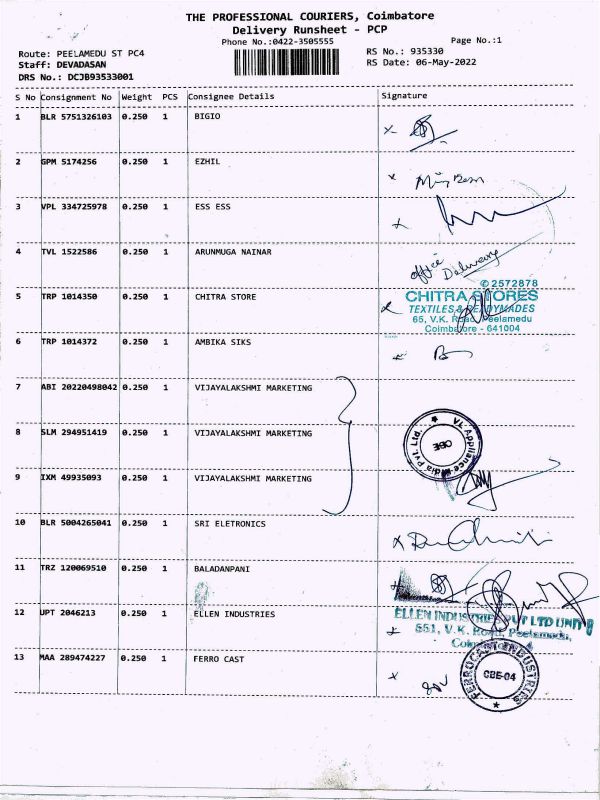 THE PROFESSIONAL COURIERS, Coimbatore
Delivery Runsheet - PCP
Phone No.:0422-3505555 Page No.:1
Route: PEELAMEDU ST PC4 RS No.: 935330
Staff: DEVADASAN RS Date: 06-May-2022
DRS No.: DCJB93533001
S No Consignment No Weight PCS Consignee Details Signature
1 BLR 5751326103 0.250 1 BIGIO
2 GPM 5174256 0.250 1 EZHIL
3 VPL 334725978 0.250 1 ESS ESS
4 TVL 1522586 0.250 1 ARUNMUGA NAINAR office Delivery
5 TRP 1014350 0.250 1 CHITRA STORE
✆ 2572878
CHITRA STORES
TEXTILES & READYMADES
65, V.K. Road, Peelamedu
Coimbatore - 641004
6 TRP 1014372 0.250 1 AMBIKA SIKS
7 ABI 20220498042 0.250 1 VIJAYALAKSHMI MARKETING
8 SLM 294951419 0.250 1 VIJAYALAKSHMI MARKETING
VL Appliance Media Pvt. Ltd.
CBE
9 IXM 49935093 0.250 1 VIJAYALAKSHMI MARKETING
10 BLR 5004265041 0.250 1 SRI ELETRONICS
11 TRZ 120069510 0.250 1 BALADANPANI
12 UPT 2046213 0.250 1 ELLEN INDUSTRIES
ELLEN INDUSTRIES PVT LTD UNIT
551, V.K. Road, Peelamedu,
13 MAA 289474227 0.250 1 FERRO CAST
FERROCAST INDUSTRIES
CBE-04